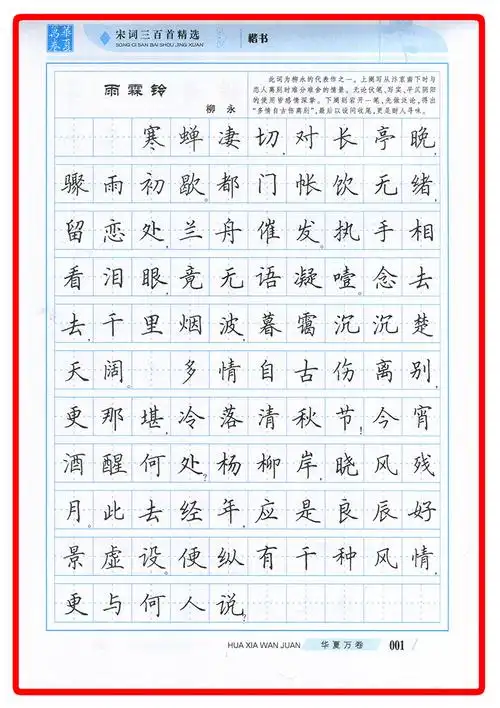 华夏万卷
宋词三百首精选
SONG CI SAN BAI SHOU JING XUAN
楷书
雨霖铃
柳永
此词为柳永的代表作之一。上阕写从汴京南下时与
恋人离别时难分难舍的情景。无论伏笔,写实,平仄阴阳
的使用皆感情深挚。下阕则宕开一笔,先做泛论,得出
“多情自古伤离别”,最后以设问收尾,更是耐人寻味。
寒蝉凄切,对长亭晚,
骤雨初歇。都门帐饮无绪,
留恋处,兰舟催发。执手相
看泪眼,竟无语凝噎。念去
去,千里烟波,暮霭沉沉楚
天阔。多情自古伤离别,
更那堪,冷落清秋节!今宵
酒醒何处?杨柳岸,晓风残
月。此去经年,应是良辰好
景虚设。便纵有千种风情,
更与何人说?
HUA XIA WAN JUAN
华夏万卷
001